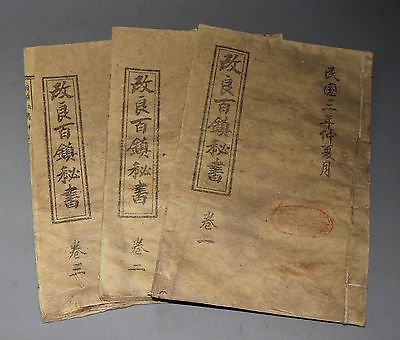 民國三年仲夏月
改良百鎮秘書
卷一
改良百鎮秘書
卷二
改良百鎮秘書
卷三